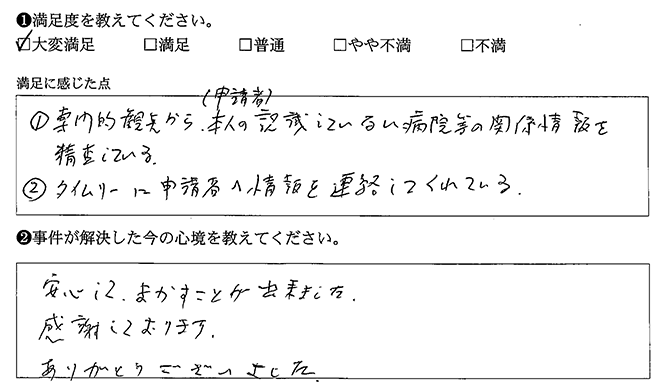 ❶満足度を教えてください。
☑大変満足 □満足 □普通 □やや不満 □不満
満足に感じた点
(申請者)
①専門的観点から、本人の認識していない病院等の関係情報を
精査している。
②タイムリーに申請者へ情報を連絡してくれている。
❷事件が解決した今の心境を教えてください。
安心して、まかすことが出来ました。
感謝しております。
ありがとうございました。